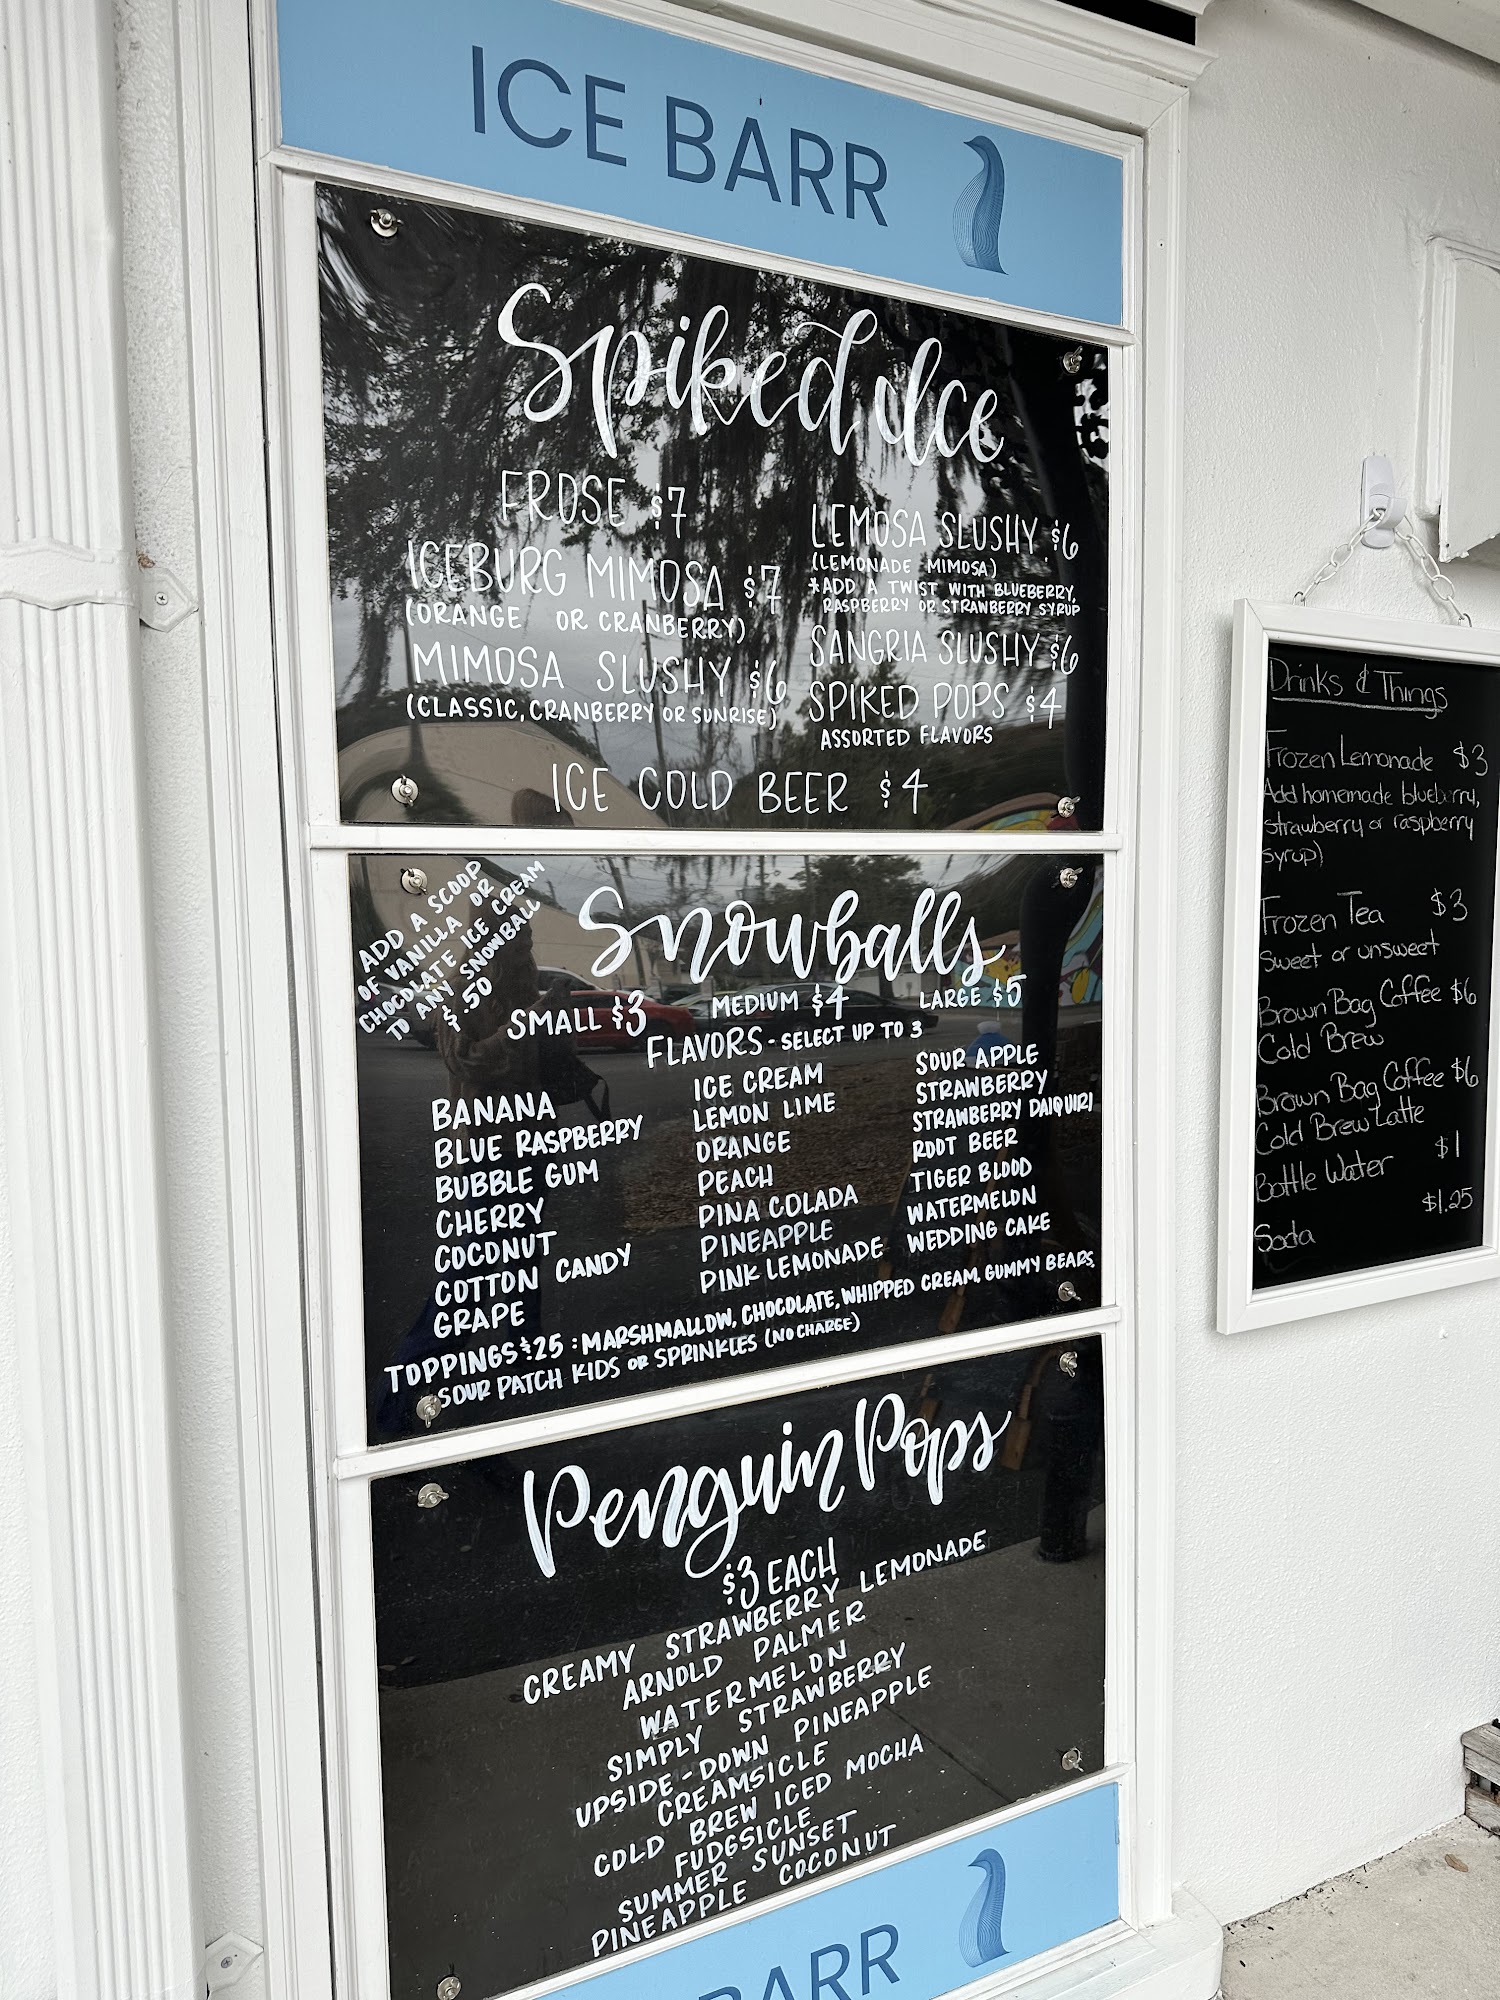 ICE BARR
Spiked Ice
FROSE $7
ICEBURG MIMOSA $7
(ORANGE OR CRANBERRY)
MIMOSA SLUSHY $6
(CLASSIC, CRANBERRY OR SUNRISE)
LEMOSA SLUSHY $6
(LEMONADE MIMOSA)
*ADD A TWIST WITH BLUEBERRY,
RASPBERRY OR STRAWBERRY SYRUP
SANGRIA SLUSHY $6
SPIKED POPS $4
ASSORTED FLAVORS
ICE COLD BEER $4
ADD A SCOOP
OF VANILLA OR
CHOCOLATE ICE CREAM
TO ANY SNOWBALL
$.50
Snowballs
SMALL $3 MEDIUM $4 LARGE $5
FLAVORS - SELECT UP TO 3
BANANA
BLUE RASPBERRY
BUBBLE GUM
CHERRY
COCONUT
COTTON CANDY
GRAPE
ICE CREAM
LEMON LIME
ORANGE
PEACH
PINA COLADA
PINEAPPLE
PINK LEMONADE
SOUR APPLE
STRAWBERRY
STRAWBERRY DAIQUIRI
ROOT BEER
TIGER BLOOD
WATERMELON
WEDDING CAKE
TOPPINGS $.25 : MARSHMALLOW, CHOCOLATE, WHIPPED CREAM, GUMMY BEARS,
SOUR PATCH KIDS OR SPRINKLES (NO CHARGE)
Penguin Pops
$3 EACH
CREAMY STRAWBERRY LEMONADE
ARNOLD PALMER
WATERMELON
SIMPLY STRAWBERRY
UPSIDE-DOWN PINEAPPLE
CREAMSICLE
COLD BREW ICED MOCHA
FUDGSICLE
SUMMER SUNSET
PINEAPPLE COCONUT
BARR
Drinks & Things
Frozen Lemonade $3
Add homemade blueberry,
strawberry or raspberry
syrup)
Frozen Tea $3
Sweet or unsweet
Brown Bag Coffee $6
Cold Brew
Brown Bag Coffee $6
Cold Brew Latte
Bottle Water $1
Soda $1.25